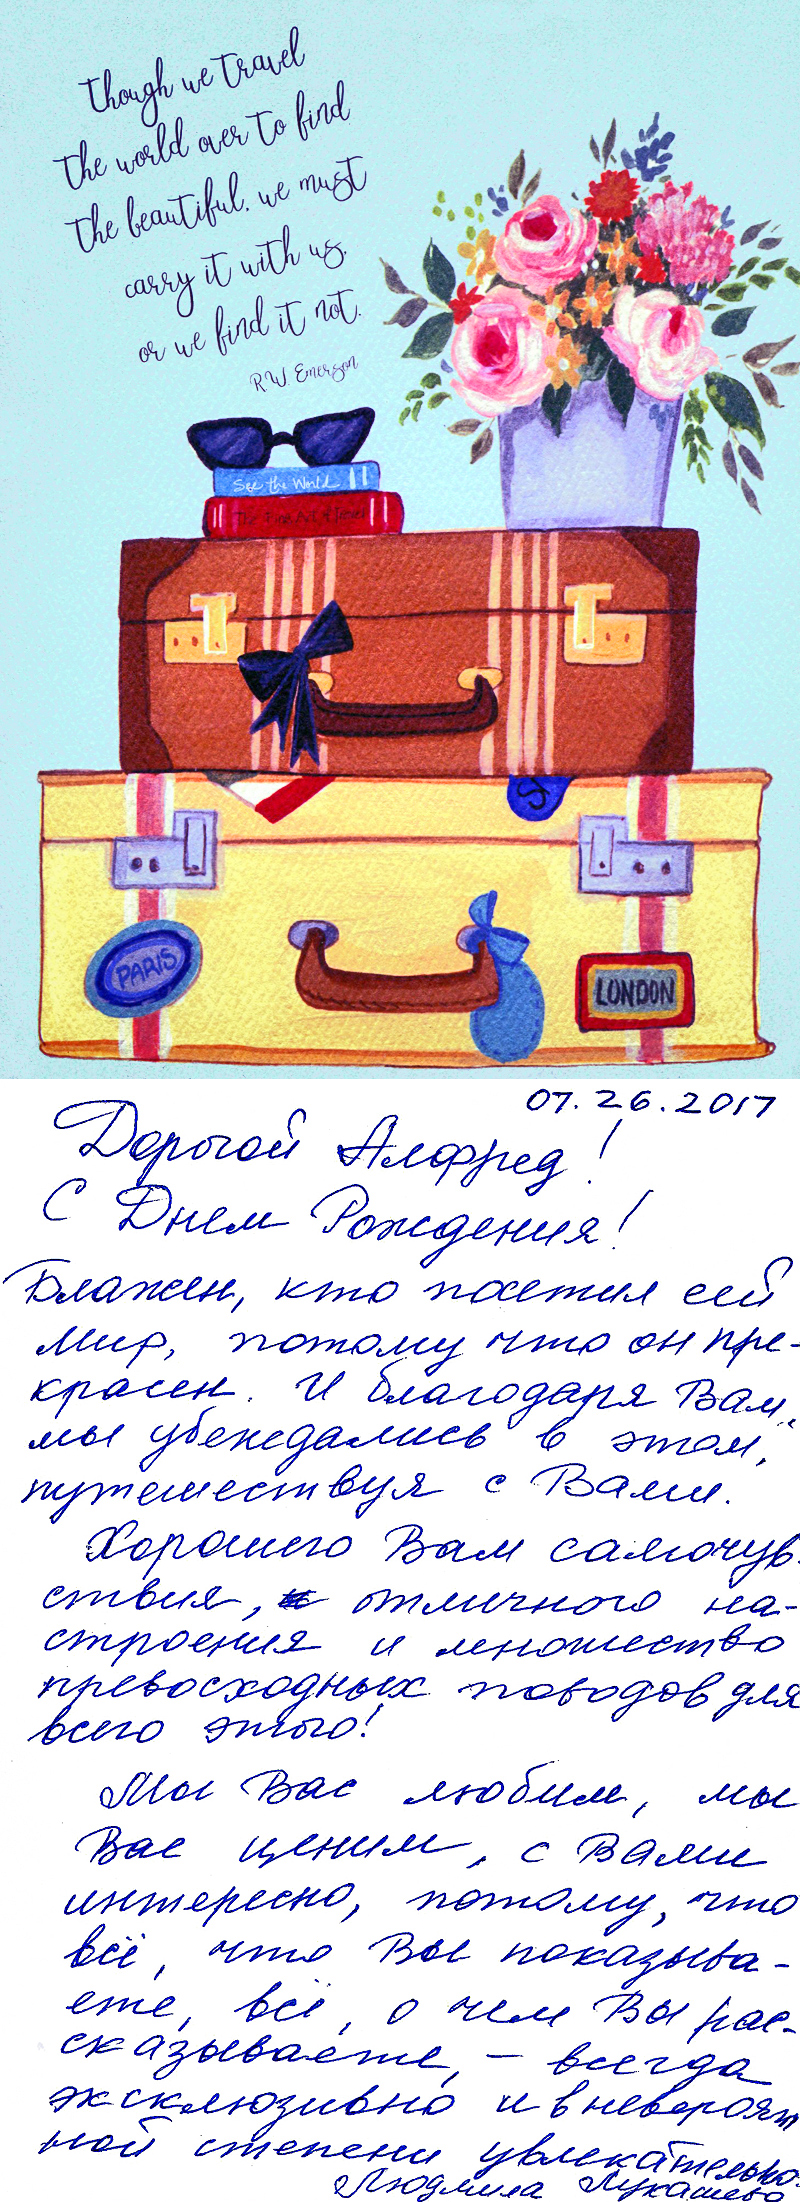 Though we travel
the world over to find
the beautiful, we must
carry it with us,
or we find it not.
R.W. Emerson
See the World
The Fine Art of Travel
PARIS
LONDON
07.26.2017
Дорогой Алфред!
С Днем Рождения!
Блажен, кто посетил сей
мир, потому что он пре-
красен. И благодаря Вам,
мы убеждались в этом,
путешествуя с Вами.
Хорошего Вам самочув-
ствия, отличного на-
строения и множество
превосходных поводов для
всего этого!
Мы Вас любим, мы
Вас ценим, с Вами
интересно, потому, что
всё, что Вы показыва-
ете, всё, о чем Вы рас-
сказываете, – всегда
эксклюзивно и в невероят
ной степени увлекательно.
Людмила Лукашева